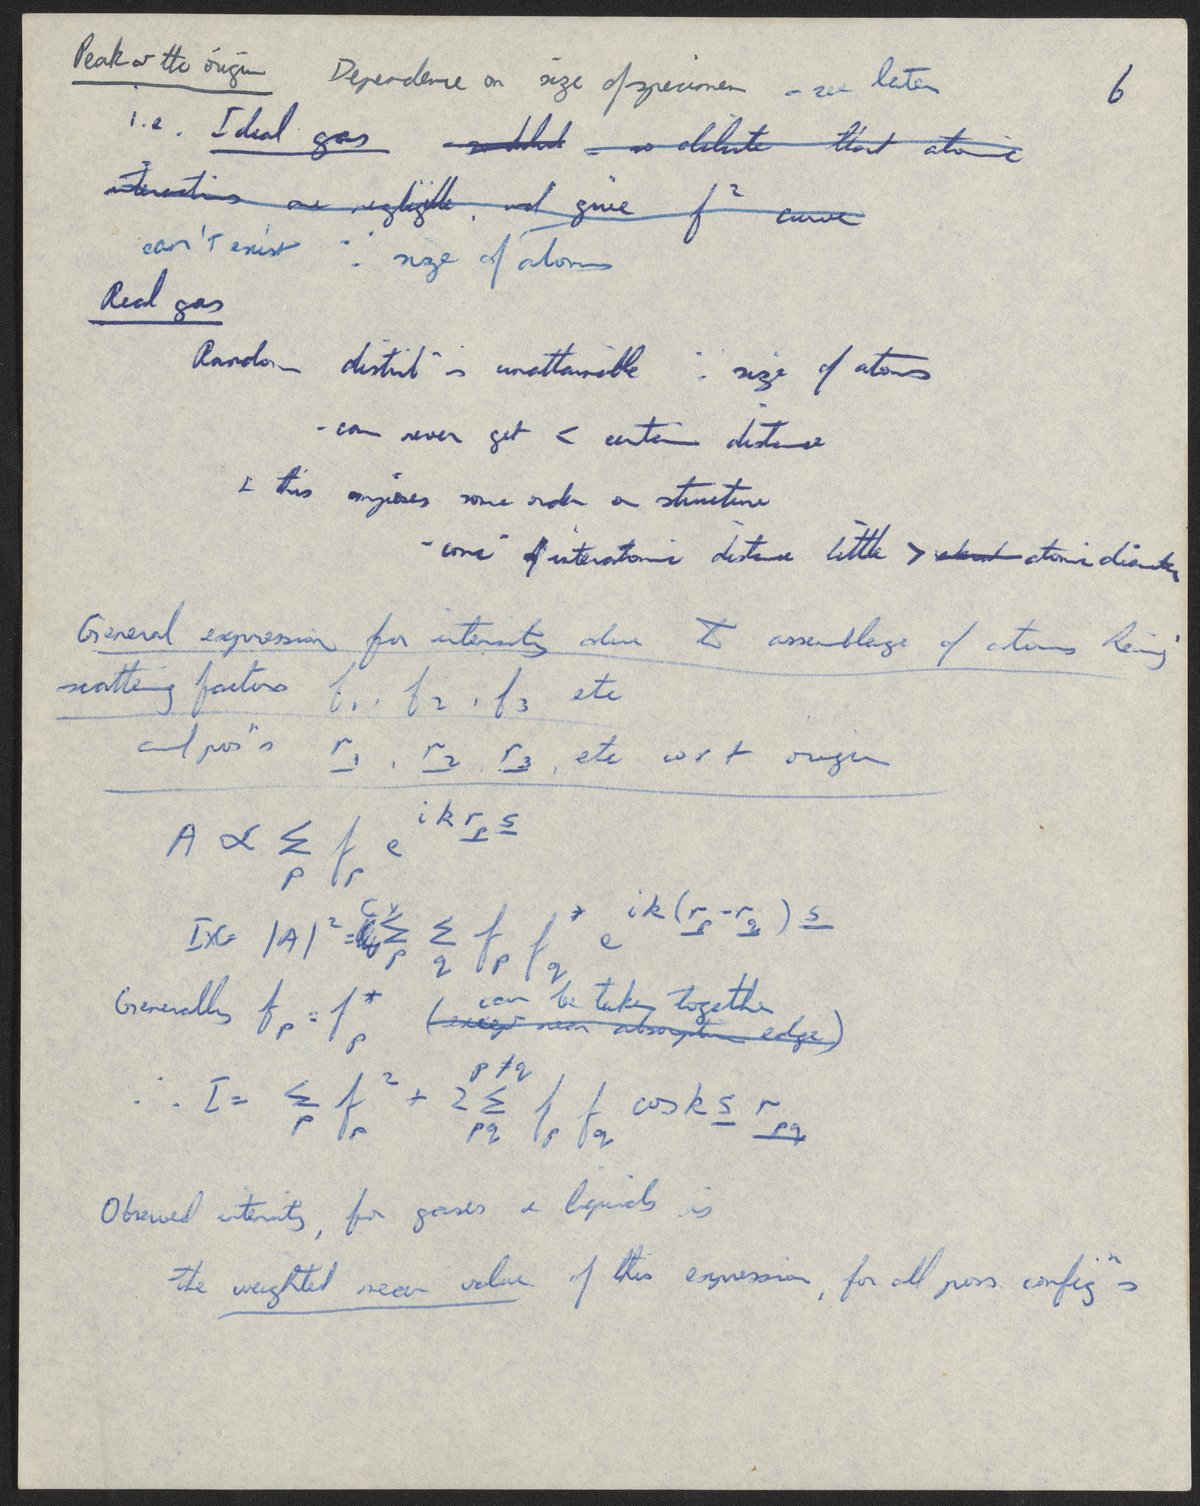 Peak at the origin Dependence on size of specimen - see later 6
i.e. Ideal gas - so dilute - so dilute that atomic
interactions are negligible, and give f² curve
can't exist ∵ size of atoms
Real gas
Random distribⁿ is unattainable ∵ size of atoms
- can never get < certain distance
& this imposes some order on structure
- concⁿ of interatomic distance little > atomic diameter
General expression for intensity due to assemblage of atoms having
scattering factors f₁, f₂, f₃ etc
and posⁿs r₁, r₂, r₃, etc w r t origin
A ∝ Σ_p f_p e^{ik r_p s}
I ∝ |A|² = Σ_p Σ_q f_p f_q* e^{ik(r_p - r_q) s}
Generally f_p = f_p* (can be taken together
except near absorption edge)
∴ I = Σ_p f_p² + 2 Σ_{pq}^{p≠q} f_p f_q cos k s r_{pq}
Observed intensity, for gases & liquids is
the weighted mean value of this expression, for all poss configⁿs